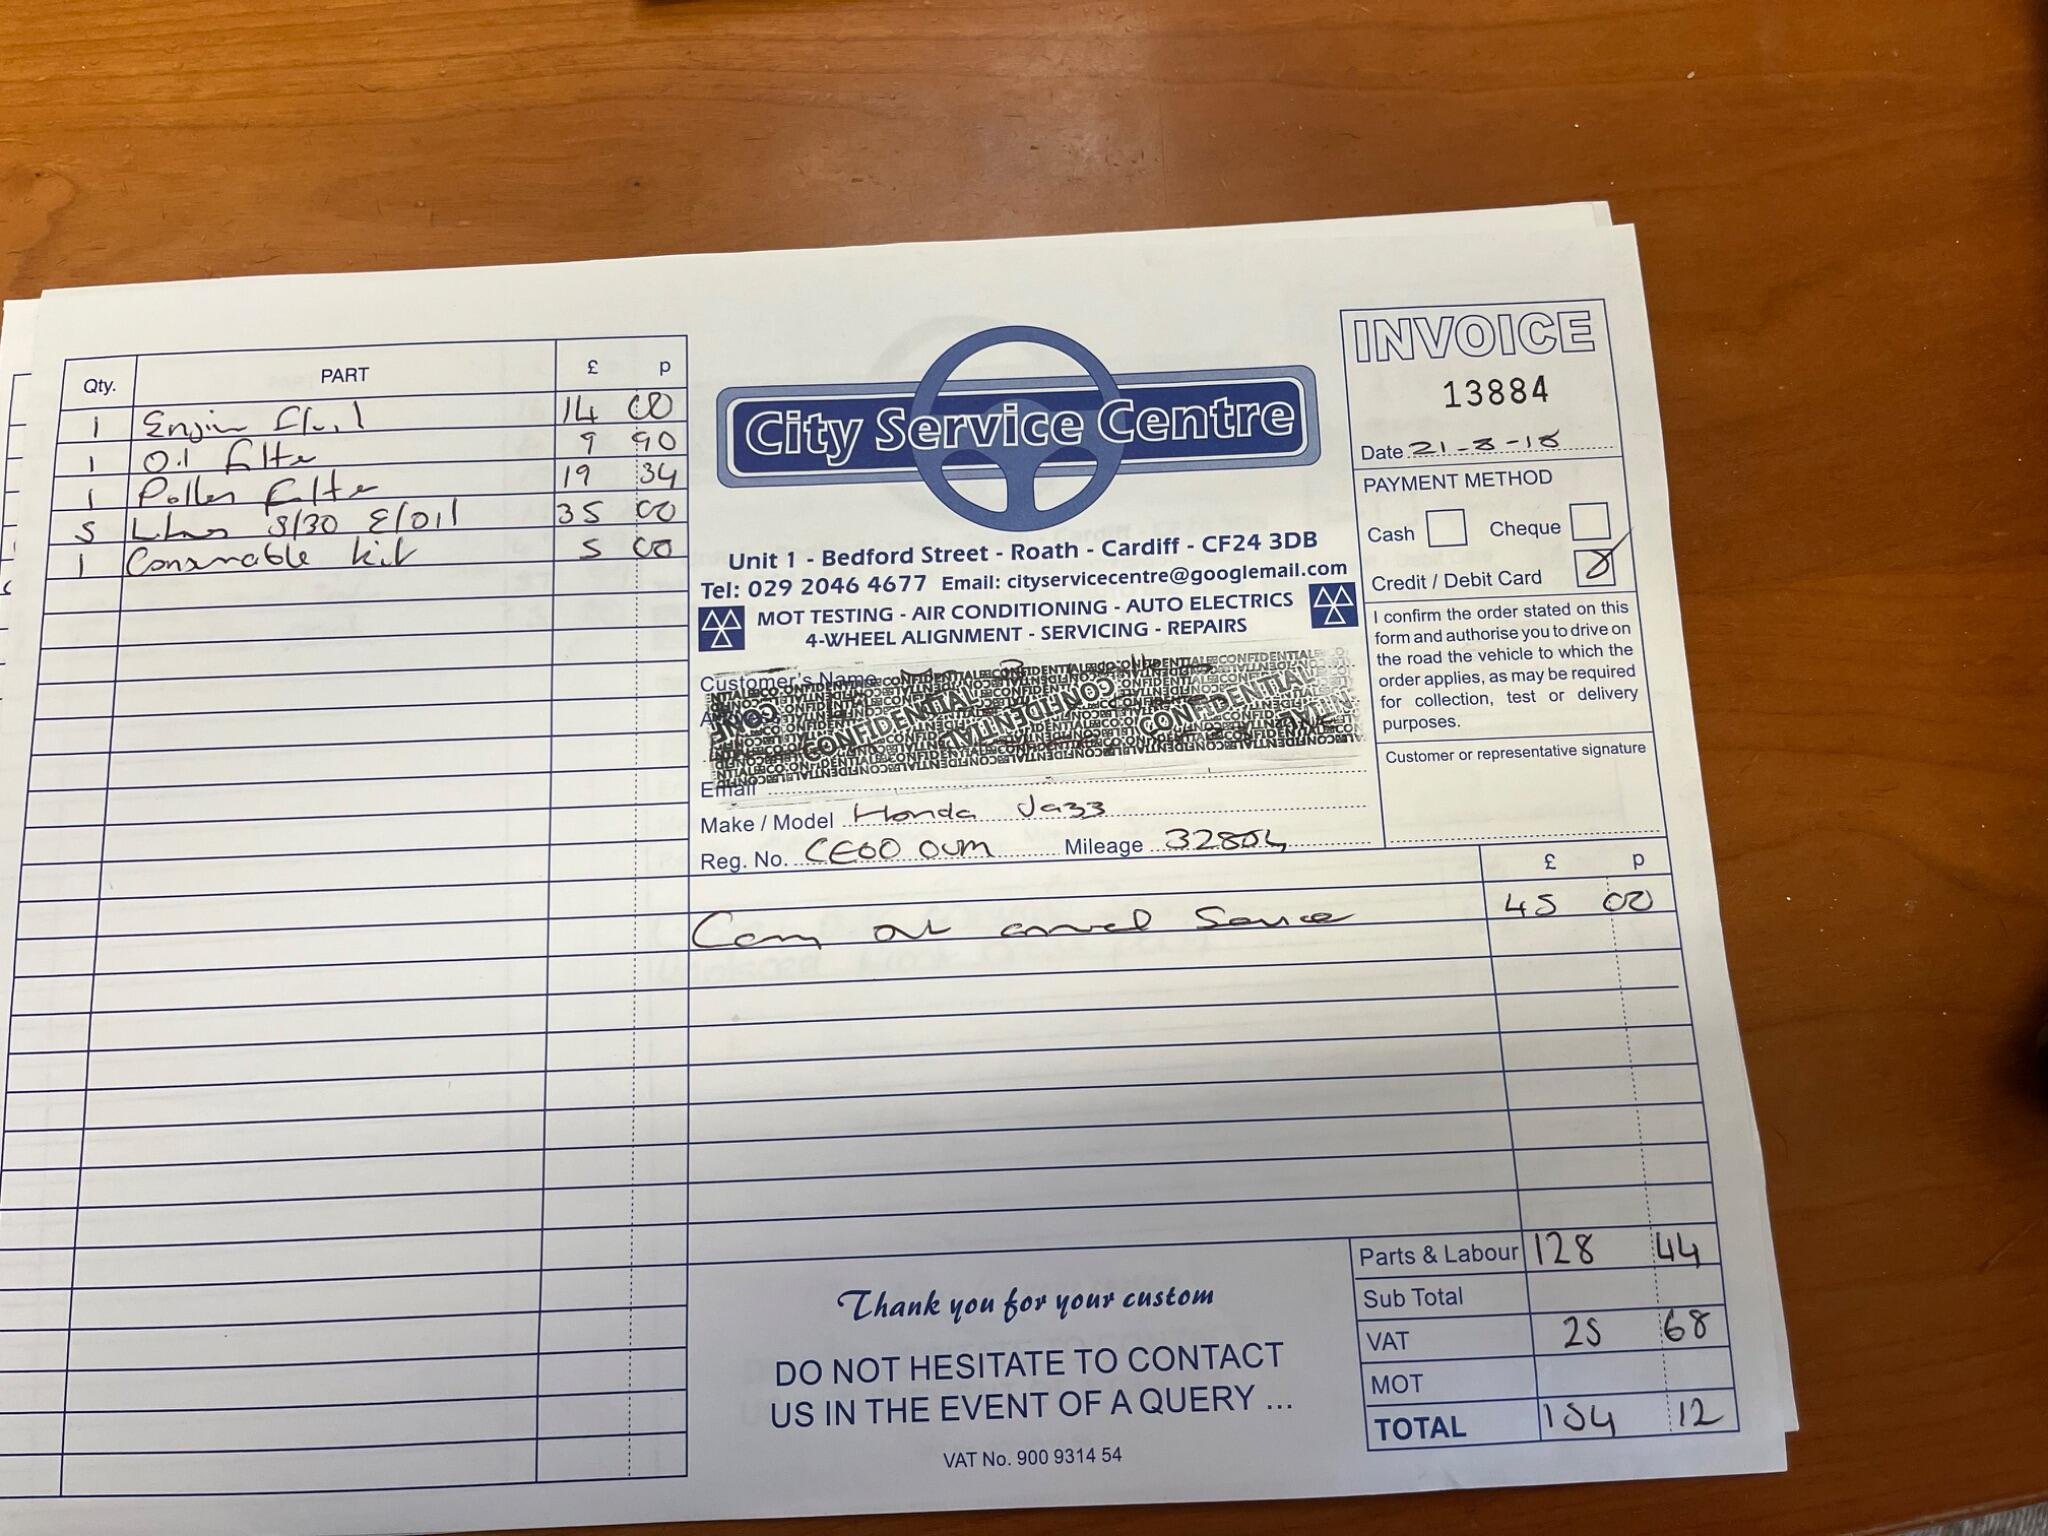 Qty. PART £ p
1 Engin Fluid 14 00
1 Oil Filter 9 90
1 Pollen Filter 19 34
5 Ltrs 5/30 E/Oil 35 00
1 Consumable kit 5 00
City Service Centre
Unit 1 - Bedford Street - Roath - Cardiff - CF24 3DB
Tel: 029 2046 4677 Email: cityservicecentre@googlemail.com
MOT TESTING - AIR CONDITIONING - AUTO ELECTRICS
4-WHEEL ALIGNMENT - SERVICING - REPAIRS
Customer's Name
CONFIDENTIAL CONFIDENTIAL CONFIDENTIAL
Email
Make / Model Honda Jazz
Reg. No. CE60 OUM Mileage 32804
INVOICE
13884
Date 21-8-18
PAYMENT METHOD
Cash Cheque
Credit / Debit Card
I confirm the order stated on this
form and authorise you to drive on
the road the vehicle to which the
order applies, as may be required
for collection, test or delivery
purposes.
Customer or representative signature
£ p
Carry out annual Service 45 00
Thank you for your custom
DO NOT HESITATE TO CONTACT
US IN THE EVENT OF A QUERY ...
VAT No. 900 9314 54
Parts & Labour 128 44
Sub Total
VAT 25 68
MOT
TOTAL 154 12